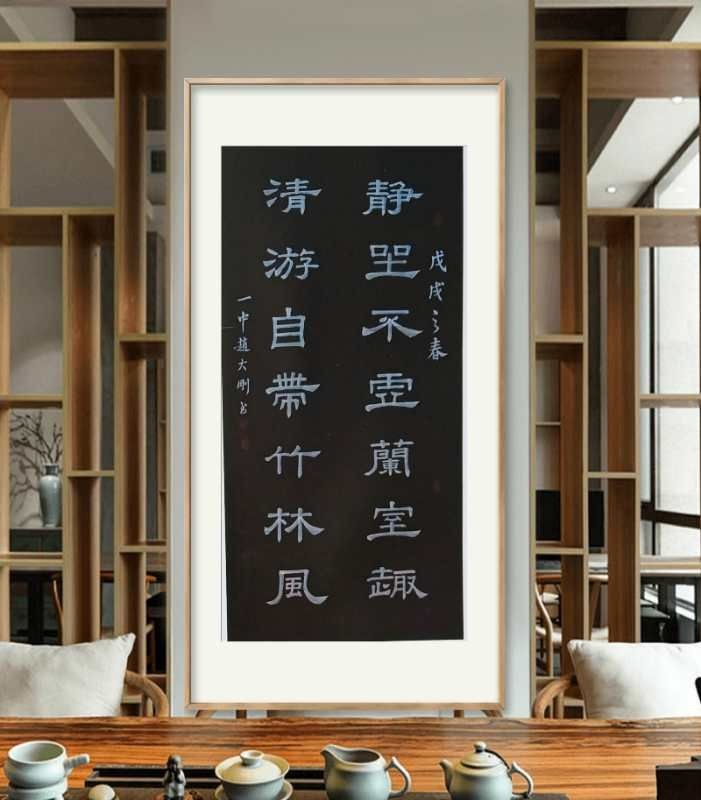 戊戌之春
静坐不虚蘭室趣
清游自帶竹林風
一中趙大剛书